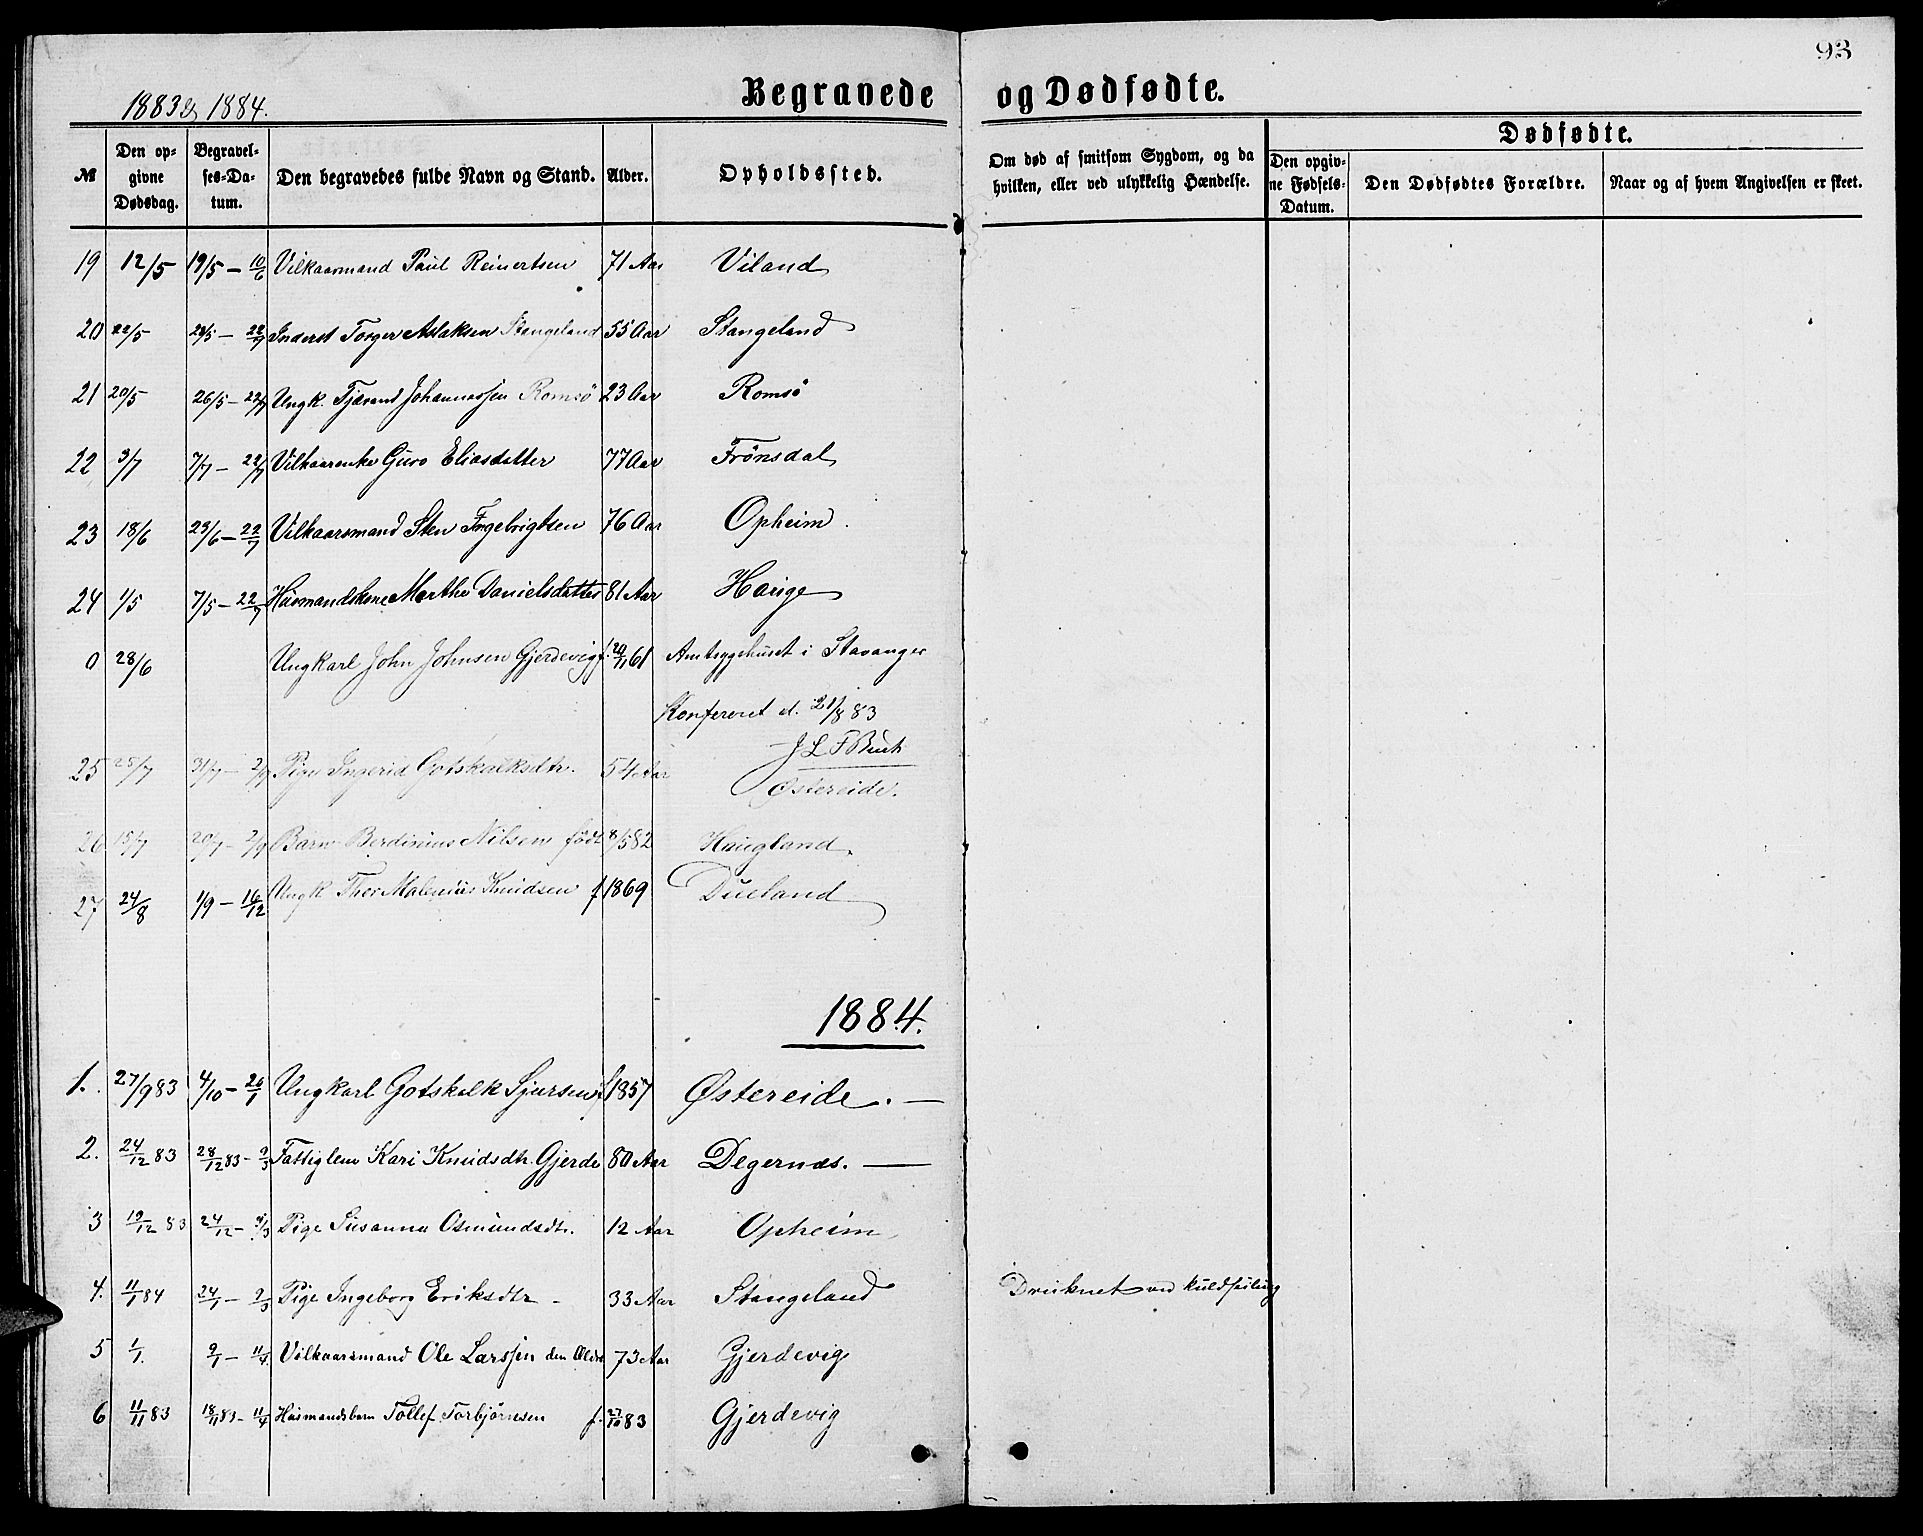 93
1883 & 1884.
Begravede og Dødfødte.
Dødfødte.
№ Den opgivne Dødsdag. Begravelses-Datum. Den begravedes fulde Navn og Stand. Alder. Opholdssted. Om død af smitsom Sygdom, og da hvilken, eller ved ulykkelig Hændelse. Den opgivne Fødsels-Datum. Den Dødfødtes Forældre. Naar og af hvem Angivelsen er skeet.
19 12/5 19/5 – 10/6 Vilkaarmand Paul Reinertsen 71 Aar Viland
20 22/5 – 22/7 Inderst Torger Aslaksen Stangeland 55 Aar Stangeland
21 20/5 26/5 – 22/7 Ungk. Tjærand Johannessen Romsö 23 Aar Romsö
22 3/7 7/7 – 22/7 Vilkaarenke Guro Eliasdatter 77 Aar Frönsdal
23 18/6 23/6 – 22/7 Vilkaarsmand Sten Ingebrigtsen 76 Aar Opheim
24 1/5 7/5 – 22/7 Husmandskone Marthe Danielsdatter 81 Aar Hauge
0 28/6 Ungkarl John Johnsen Gjerdevig f. 20/11 61 Amtsygehuset i Stavanger
Konfereret d. 21/8 83
J L F Buch
25 25/7 31/7 – 2/9 Pige Ingerid Gotskalksdtr. 54 Aar Østereide.
26 15/7 20/7 – 2/9 Barn Berdinius Nilsen födt 8/5 82 Haugland
27 24/8 1/9 – 16/12 Ungk Thor Malenius Knudsen f 1869 Dueland
1884.
1. 27/9 83 4/10 – 20/1 Ungkarl Gotskalk Sjursen f 1857 Østereide. —
2. 24/12 83 28/12 83 – 2/3 Fattiglem Kari Knudsdtr. Gjerde 80 Aar Degernes. —
3 19/12 83 24/12 – 2/3 Pige Susanna Osmundsdtr. 12 Aar Opheim
4. 11/1 84 24/1 – 2/3 Pige Ingeborg Eriksdtr – 33 Aar Stangeland Druknet ved kuldseiling
5 1/1. 9/1 – 11/4 Vilkaarsmand Ole Larssen den Ældre 73 Aar Gjerdevig
6 11/11 83 18/11 83 – 11/4 Husmandsbarn Tollef Torbjörnsen f. 27/10 83 Gjerdevig